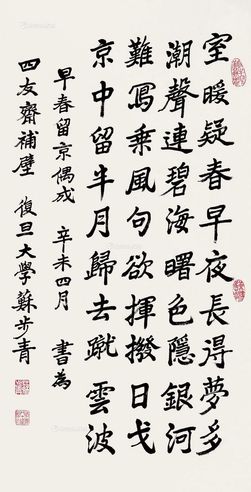 室暖疑春早夜長得夢多
潮聲連碧海曙色隱銀河
難寫乗風句欲揮撥日戈
京中留半月歸去蹴雲波
早春留京偶成 辛未四月 書為
四友齋補壁 復旦大學蘇步青